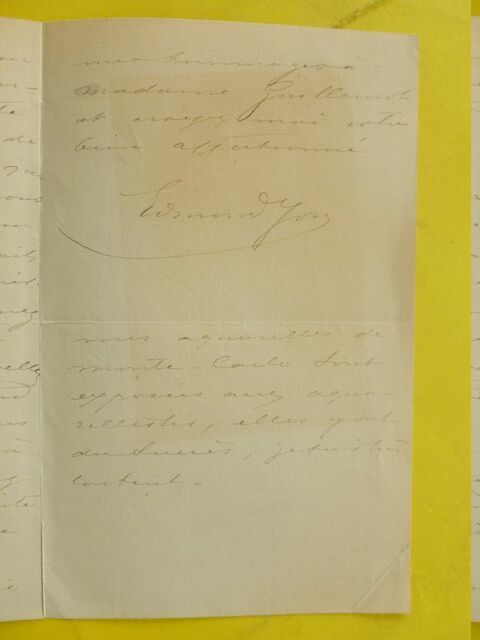 mes hommages à
madame Guillemot
et croyez moi votre
bien affectionné
Edmond Yon
mes aquarelles de
monte-Carlo sont
exposées aux aqua-
rellistes, elles y ont
du succès, je suis très
content-
de
à